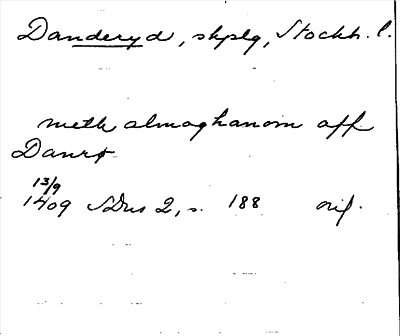 Danderyd, skplg, Stockh. l.
meth almoghanom aff
Danrø
13/9
1409 SDns 2, s. 188 orig.